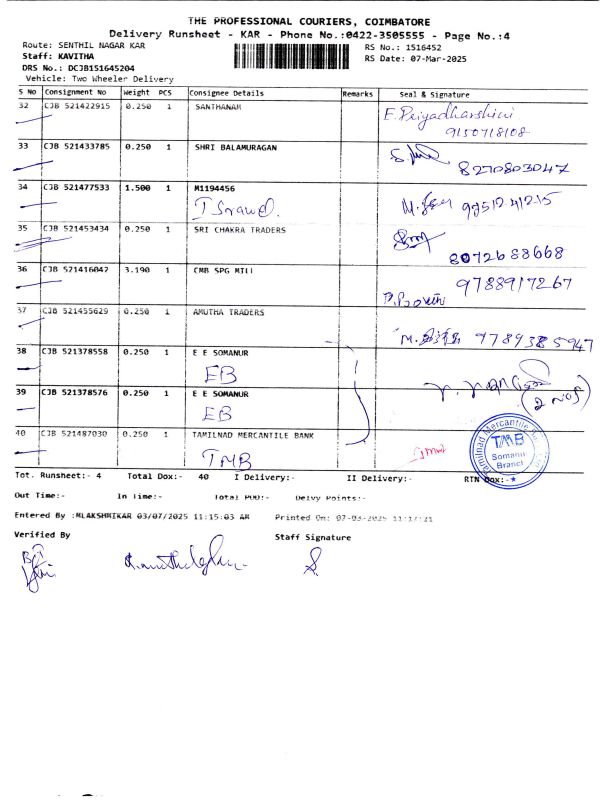 THE PROFESSIONAL COURIERS, COIMBATORE
Delivery Runsheet - KAR - Phone No.:0422-3505555 - Page No.:4
Route: SENTHIL NAGAR KAR
RS No.: 1516452
Staff: KAVITHA
RS Date: 07-Mar-2025
DRS No.: DCJB1S1645204
Vehicle: Two Wheeler Delivery
S No Consignment No Weight PCS Consignee Details Remarks Seal & Signature
32 CJB 521422915 0.250 1 SANTHANAM E. Priyadharshini
9150718108
33 CJB 521433785 0.250 1 SHRI BALAMURAGAN 8270803047
34 CJB 521477533 1.500 1 M1194456
35 CJB 521453434 0.250 1 SRI CHAKRA TRADERS
8072688668
36 CJB 521416042 3.190 1 CMB SPG MILL 9788917267
37 CJB 521455629 0.250 1 AMUTHA TRADERS
9789385947
38 CJB 521378558 0.250 1 E E SOMANUR
EB
39 CJB 521378576 0.250 1 E E SOMANUR
EB
(2 NOS)
40 CJB 521487030 0.250 1 TAMILNAD MERCANTILE BANK
TMB
Tamilnad Mercantile
TMB
Somanur
Branch
Tot. Runsheet:- 4 Total Dox:- 40 I Delivery:- II Delivery:- RTN Dox:-
Out Time:- In Time:- Total POD:- Delvy Points:-
Entered By :MLAKSHMIKAR 03/07/2025 11:15:03 AM Printed On: 07-03-2025 11:17:21
Verified By
Staff Signature